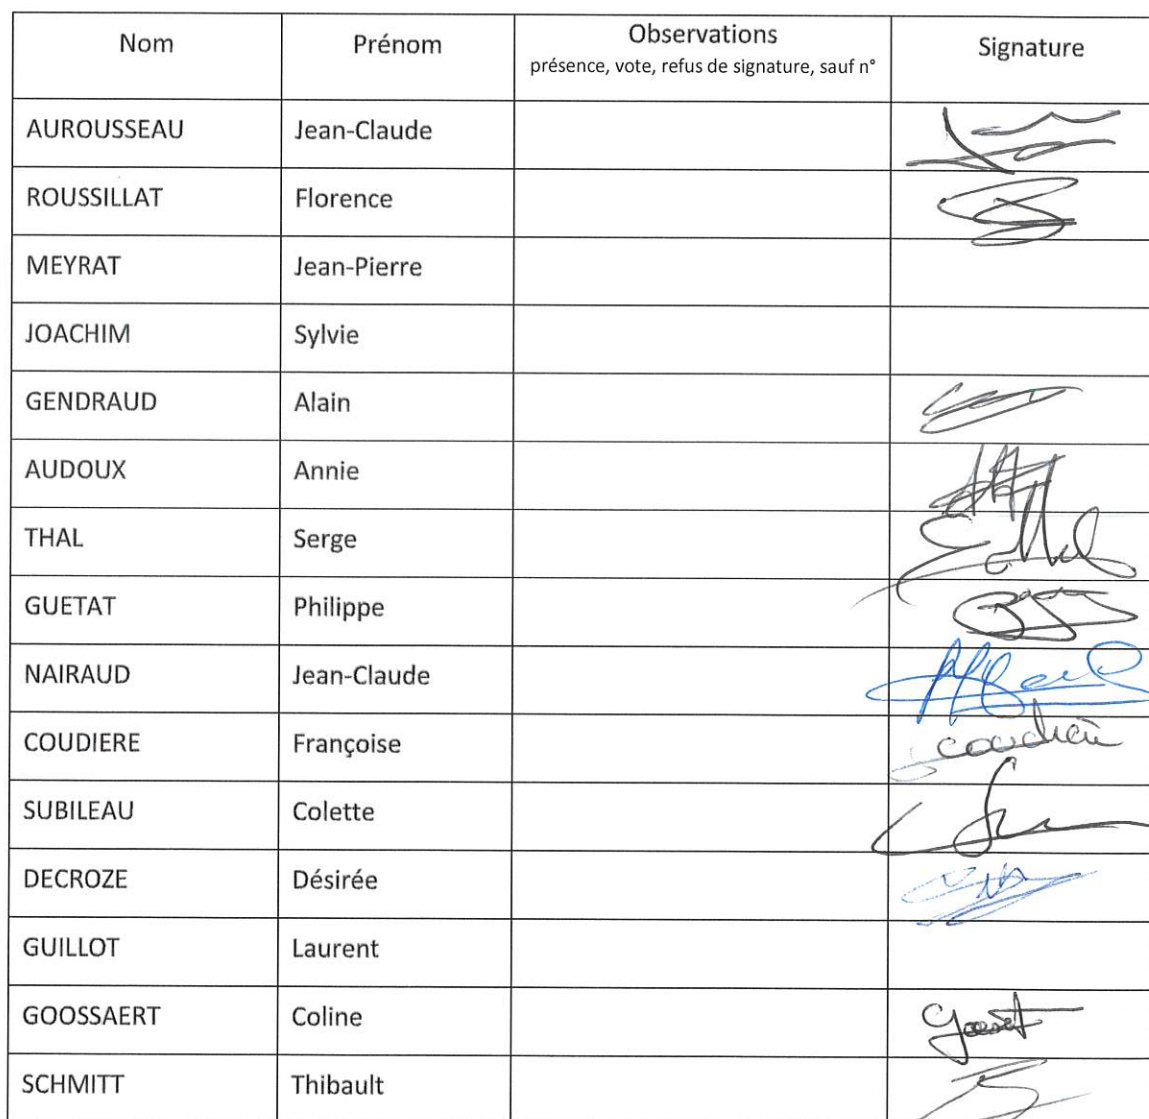 Nom Prénom Observations Signature
présence, vote, refus de signature, sauf n°
AUROUSSEAU Jean-Claude
ROUSSILLAT Florence
MEYRAT Jean-Pierre
JOACHIM Sylvie
GENDRAUD Alain
AUDOUX Annie
THAL Serge
GUETAT Philippe
NAIRAUD Jean-Claude
COUDIERE Françoise
SUBILEAU Colette
DECROZE Désirée
GUILLOT Laurent
GOOSSAERT Coline
SCHMITT Thibault